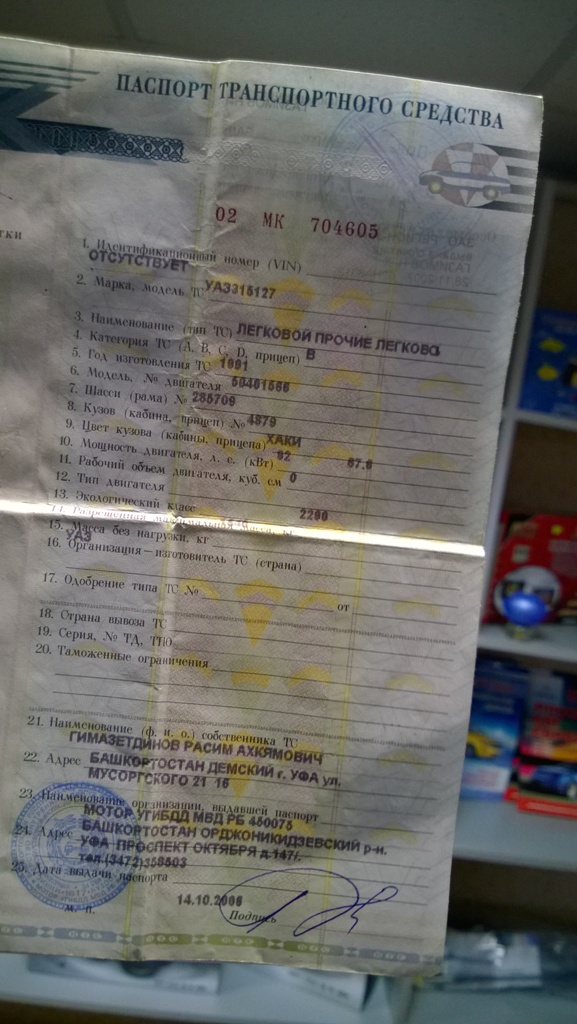 ПАСПОРТ ТРАНСПОРТНОГО СРЕДСТВА
02 МК 704605
1. Идентификационный номер (VIN)
ОТСУТСТВУЕТ
2. Марка, модель ТС УАЗ315127
3. Наименование (тип ТС) ЛЕГКОВОЙ ПРОЧИЕ ЛЕГКОВОЙ
4. Категория ТС (А, В, С, D, прицеп) В
5. Год изготовления ТС 1991
6. Модель, № двигателя 50401566
7. Шасси (рама) № 285709
8. Кузов (кабина, прицеп) № 4879
9. Цвет кузова (кабины, прицепа) ХАКИ
10. Мощность двигателя, л. с. (кВт) 92 67.6
11. Рабочий объем двигателя, куб. см 0
12. Тип двигателя
13. Экологический класс
14. Разрешенная максимальная масса, кг 2200
15. Масса без нагрузки, кг
УАЗ
16. Организация – изготовитель ТС (страна)
17. Одобрение типа ТС № от
18. Страна вывоза ТС
19. Серия, № ТД, ТПО
20. Таможенные ограничения
21. Наименование (ф. и. о.) собственника ТС
ГИМАЗЕТДИНОВ РАСИМ АХКЯМОВИЧ
22. Адрес БАШКОРТОСТАН ДЕМСКИЙ г. УФА ул.
МУСОРГСКОГО 21 16
23. Наименование организации, выдавшей паспорт
МОТОР УГИБДД МВД РБ 450075
24. Адрес БАШКОРТОСТАН ОРДЖОНИКИДЗЕВСКИЙ р-н.
УФА ПРОСПЕКТ ОКТЯБРЯ д.147/.
тел.(3472)358503
25. Дата выдачи паспорта
14.10.2006
М. п. Подпись